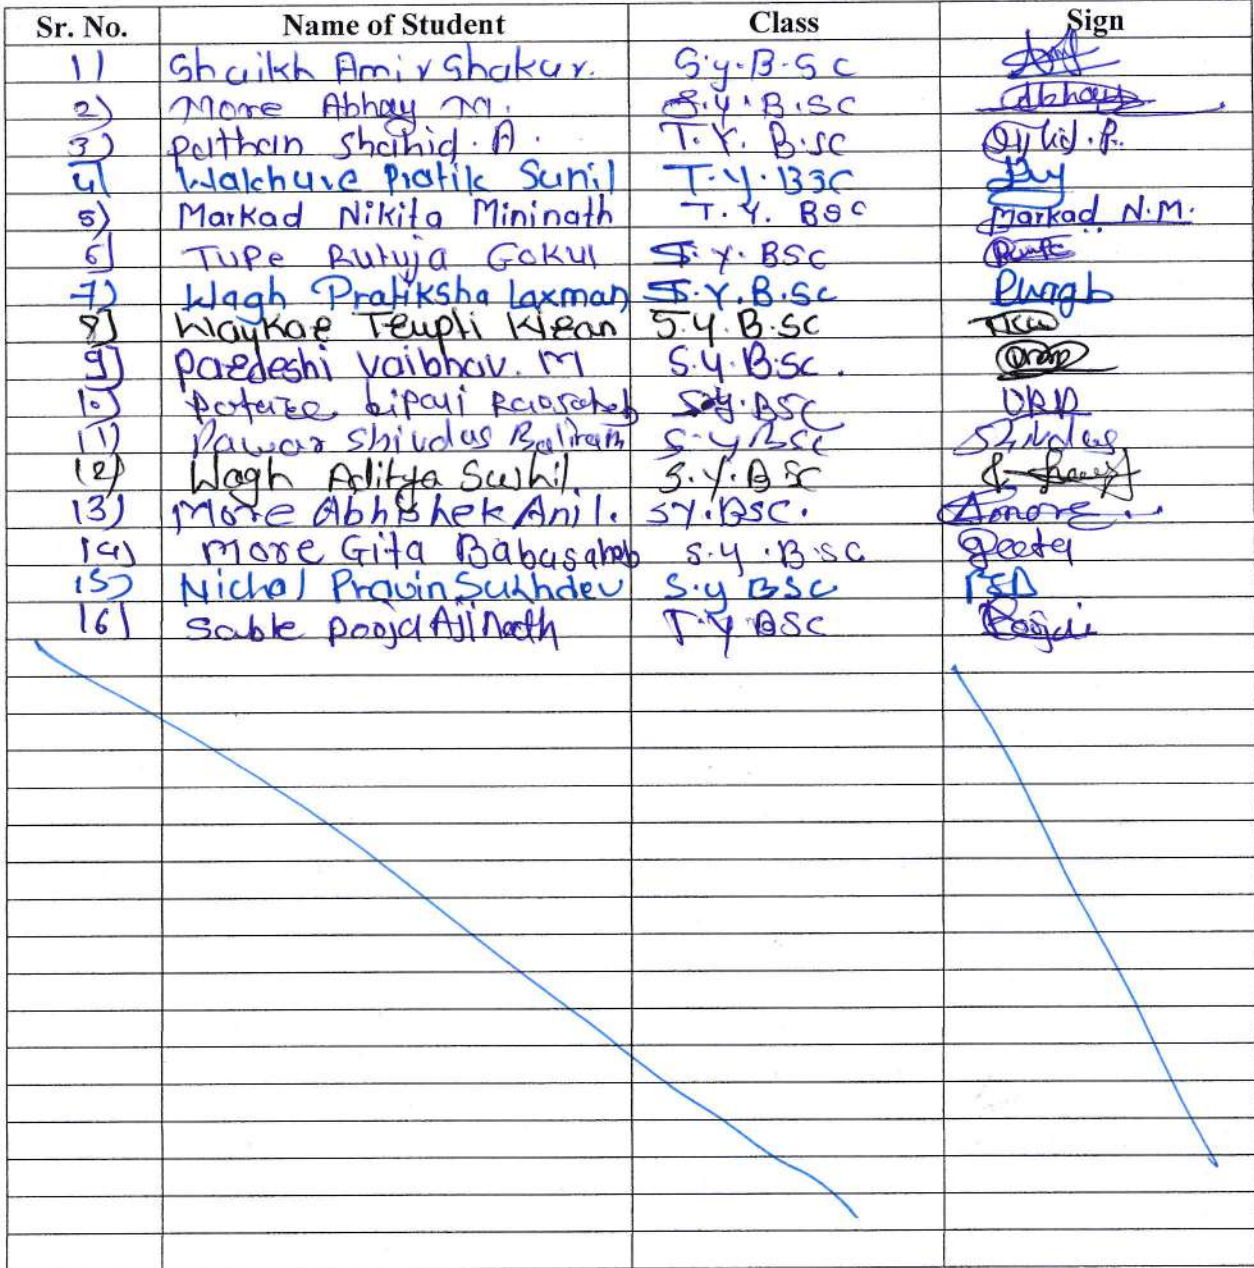 Sr. No. Name of Student Class Sign
1) Shaikh Amir Shakur. S.y.B.Sc
2) More Abhay M. S.Y.B.SC Abhay
3) Pathan Shahid. A. T.Y. B.sc
4) Walchure Pratik Sunil T.Y.BSC
5) Markad Nikita Mininath T.Y. BSC Markad N.M.
6] Tupe Rutuja Gokul S.Y. BSC
7) Wagh Pratiksha Laxman S.Y.B.Sc Pwagh
8] Waykar Trupti Kiran S.Y.B.SC
9] Pardeshi Vaibhav. M S.y.B.Sc.
10) S.y.BSC
11) Pawar Shivdas Baliram S.y BSc Shivdas
12) Wagh Aditya Sushil. S.Y.B Sc
13) More Abhishek Anil. SY.BSC. Amore.
14) More Gita Babasaheb S.Y.B.SC Geeta
15) Nichal Pravin Sukhdev S.y BSC
16) Sable Pooja Ajinath T.Y BSC Pooja